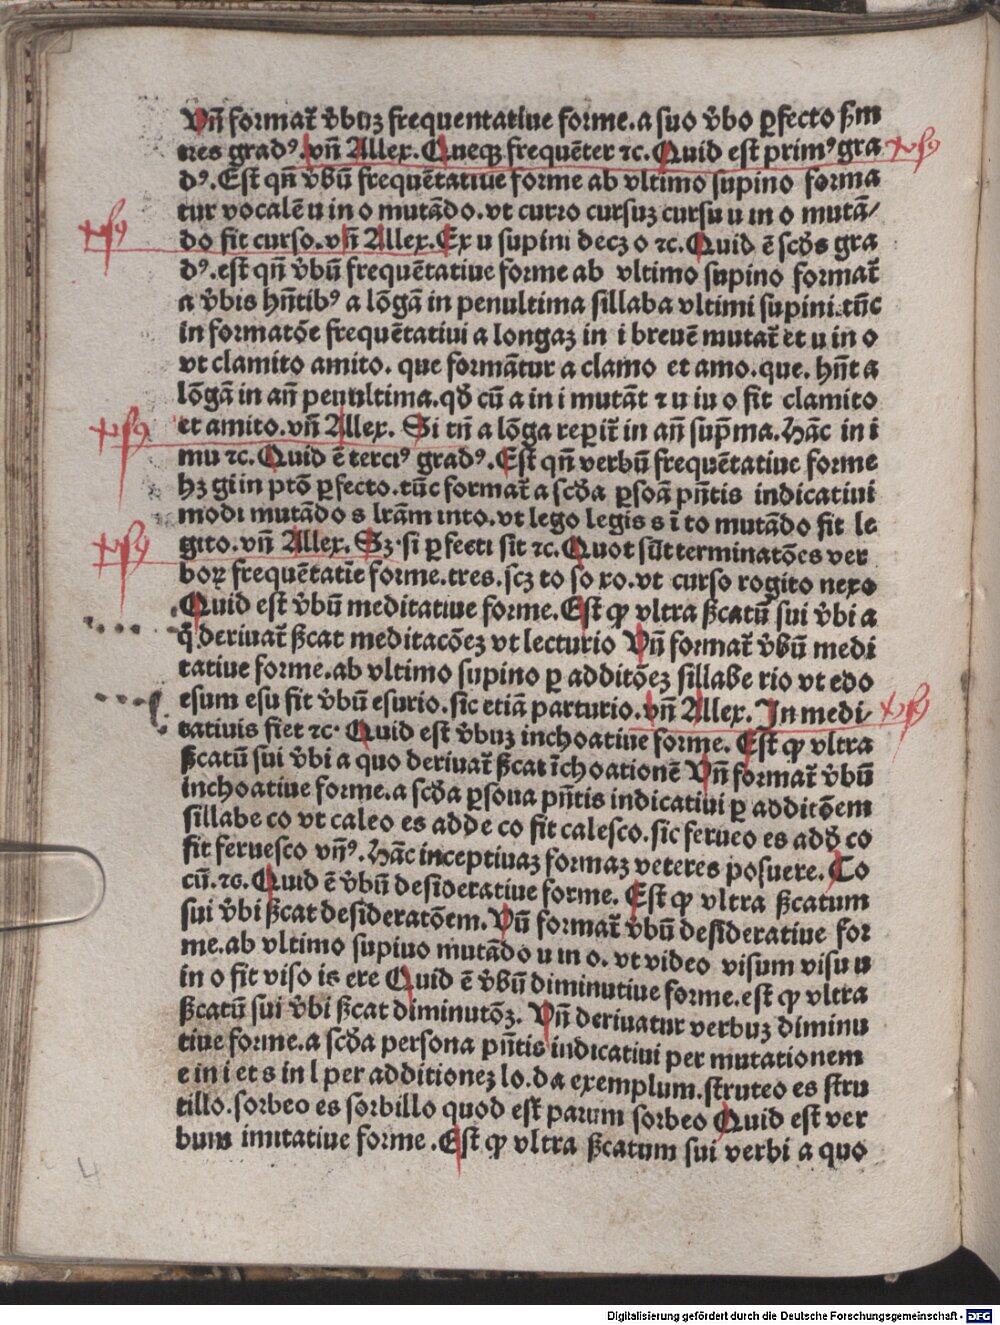 Vñ format᷑ v̓buꝫ frequentatiue forme.a suo v̓bo ꝑfecto p̱m
nes gradꝰ.vñ Allex. Queqꝫ frequēter ⁊c. Quid est primꝰ gra versꝰ
dꝰ.Est qn̄ v̓bū frequētatiue forme ab vltimo supino forma
tur vocalē u in o mutādo.vt curro cursuꝫ cursu u in o mutā/
do fit curso.vn̄ Allex. Ex u supini decꝫ o ⁊c. Quid ē scd̓s gra
dꝰ.est qn̄ v̓bū frequētatiue forme ab vltimo supino format᷑
a v̓bis hn̄tibꝰ a lōgā in penultima sillaba vltimi supini.tūc
in formatōe frequētatiui a longaꝫ in i breuē mutat᷑ et u in o
vt clamito amito. que formātur a clamo et amo.que. hn̄t a
lōgā in an̄ penultima.qd̓ cū a in i mutāt ⁊ u iu o fit clamito
et amito.vn̄ Allex. Si tn̄ a lōga reperit᷑ in an̄ sup̄ma. Hāc in i
mu ⁊c. Quid ē terciꝰ gradꝰ. Est qn̄ verbū frequētatiue forme
hꝫ gi in p̄tō ꝑfecto.tūc format᷑ a scd̓a ꝑsoā pn̄tis indicatiui
modi mutādo s lr̄am into.vt lego legis s ī to mutādo fit le
gito.vn̄ Allex. Sꝫ si ꝑfecti sit ⁊c. Quot sūt terminatōes ver
boꝝ frequētatīe forme.tres.scꝫ to so xo.vt curso rogito nexo
Quid est v̓bū meditatiue forme. Est qꝫ vltra ßcatū sui v̓bi a
q̓ deriuat᷑ ßcat meditacōeꝫ vt lecturio Vn̄ format᷑ v̓bū medi
tatiue forme.ab vltimo supino ꝑ additōeꝫ sillabe rio vt edo
esum esu fit v̓bū esurio.sic etiā parturio.vn̄ Allex. In medi/
tatiuis fiet ⁊c. Quid est v̓buꝫ inchoatiue forme. Est qꝫ vltra
ßcatū sui v̓bi a quo deriuat᷑ ßcat īchoationē Vn̄ format᷑ v̓bū
inchoatiue forme.a scd̓a ꝑsona pn̄tis indicatiui ꝑ additōem
sillabe co vt caleo es adde co fit calesco.sic ferueo es add̓ co
fit feruesco vn̄ꝰ. Hāc inceptiuaꝫ formaꝫ veteres posuere. To
cū.⁊c. Quid ē v̓bū desideratiue forme. Est qꝫ vltra ßcatum
sui v̓bi ßcat desideratōem. Vn̄ format᷑ v̓bū desideratiue for
me.ab vltimo supiuo mutādo u in o. vt video visum visu u
in o fit viso is ere Quid ē v̓bū diminutiue forme.est qꝫ vltra
ßcatū sui v̓bi ßcat diminutōꝫ. Vn̄ deriuatur verbuꝫ diminu
tiue forme.a scd̓a persona pn̄tis indicatiui per mutationem
e in i et s in l per additioneꝫ lo.da exemplum.struteo es stru
tillo.sorbeo es sorbillo quod est parum sorbeo Quid est ver
bum imitatiue forme. Est qꝫ vltra ßcatum sui verbi a quo